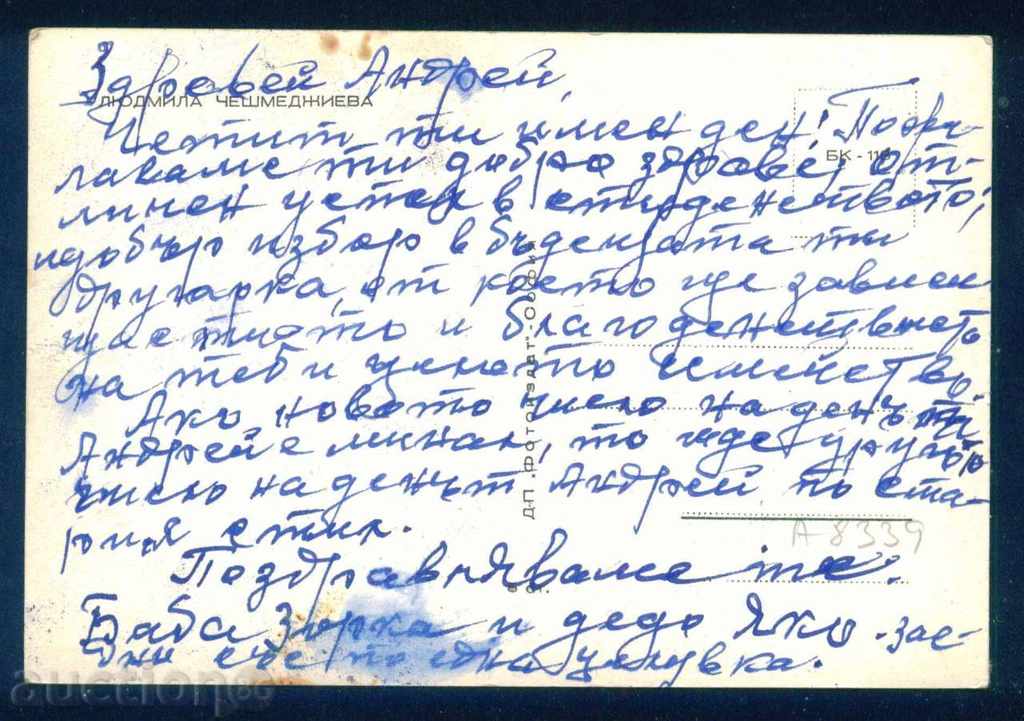 Здравей Андрей,
ЛЮДМИЛА ЧЕШМЕДЖИЕВА
Честит ти имен ден! Поже-
лаваме ти добро здраве, от-
БК - 11
личен успех в студенството,
и добър избор в бъдещата ти
другарка, от което ще зависи
щастието и благоденствието
на теб и цялото семейство.
Ако, новото число на денът
Андрей е минал, то иде другото
число на денът Андрей по ста-
рия стил.
Поздравяваме те.
Баба Зорка и дедо Яко - зае-
дни със по една целувка.
Д-П. „Фотоиздат" - София
А 8339
auction